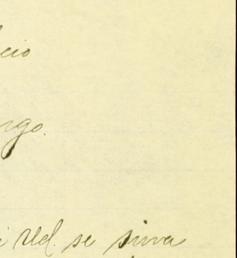 cio
rgo.
i Ud. se sirva